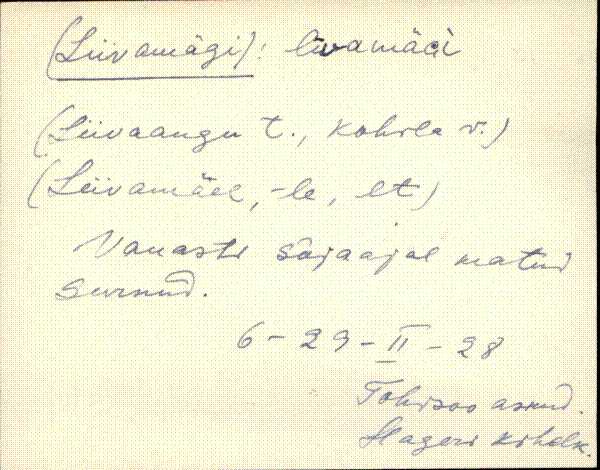 (Liivamägi): livamäci
(Liivaangu t., Kohila v.)
(Liivamäel, -le, -lt)
Vanasti sõjaajal matud
surnud.
6 - 29 - II - 28
Tohisoo asund.
Hageri kihelk.